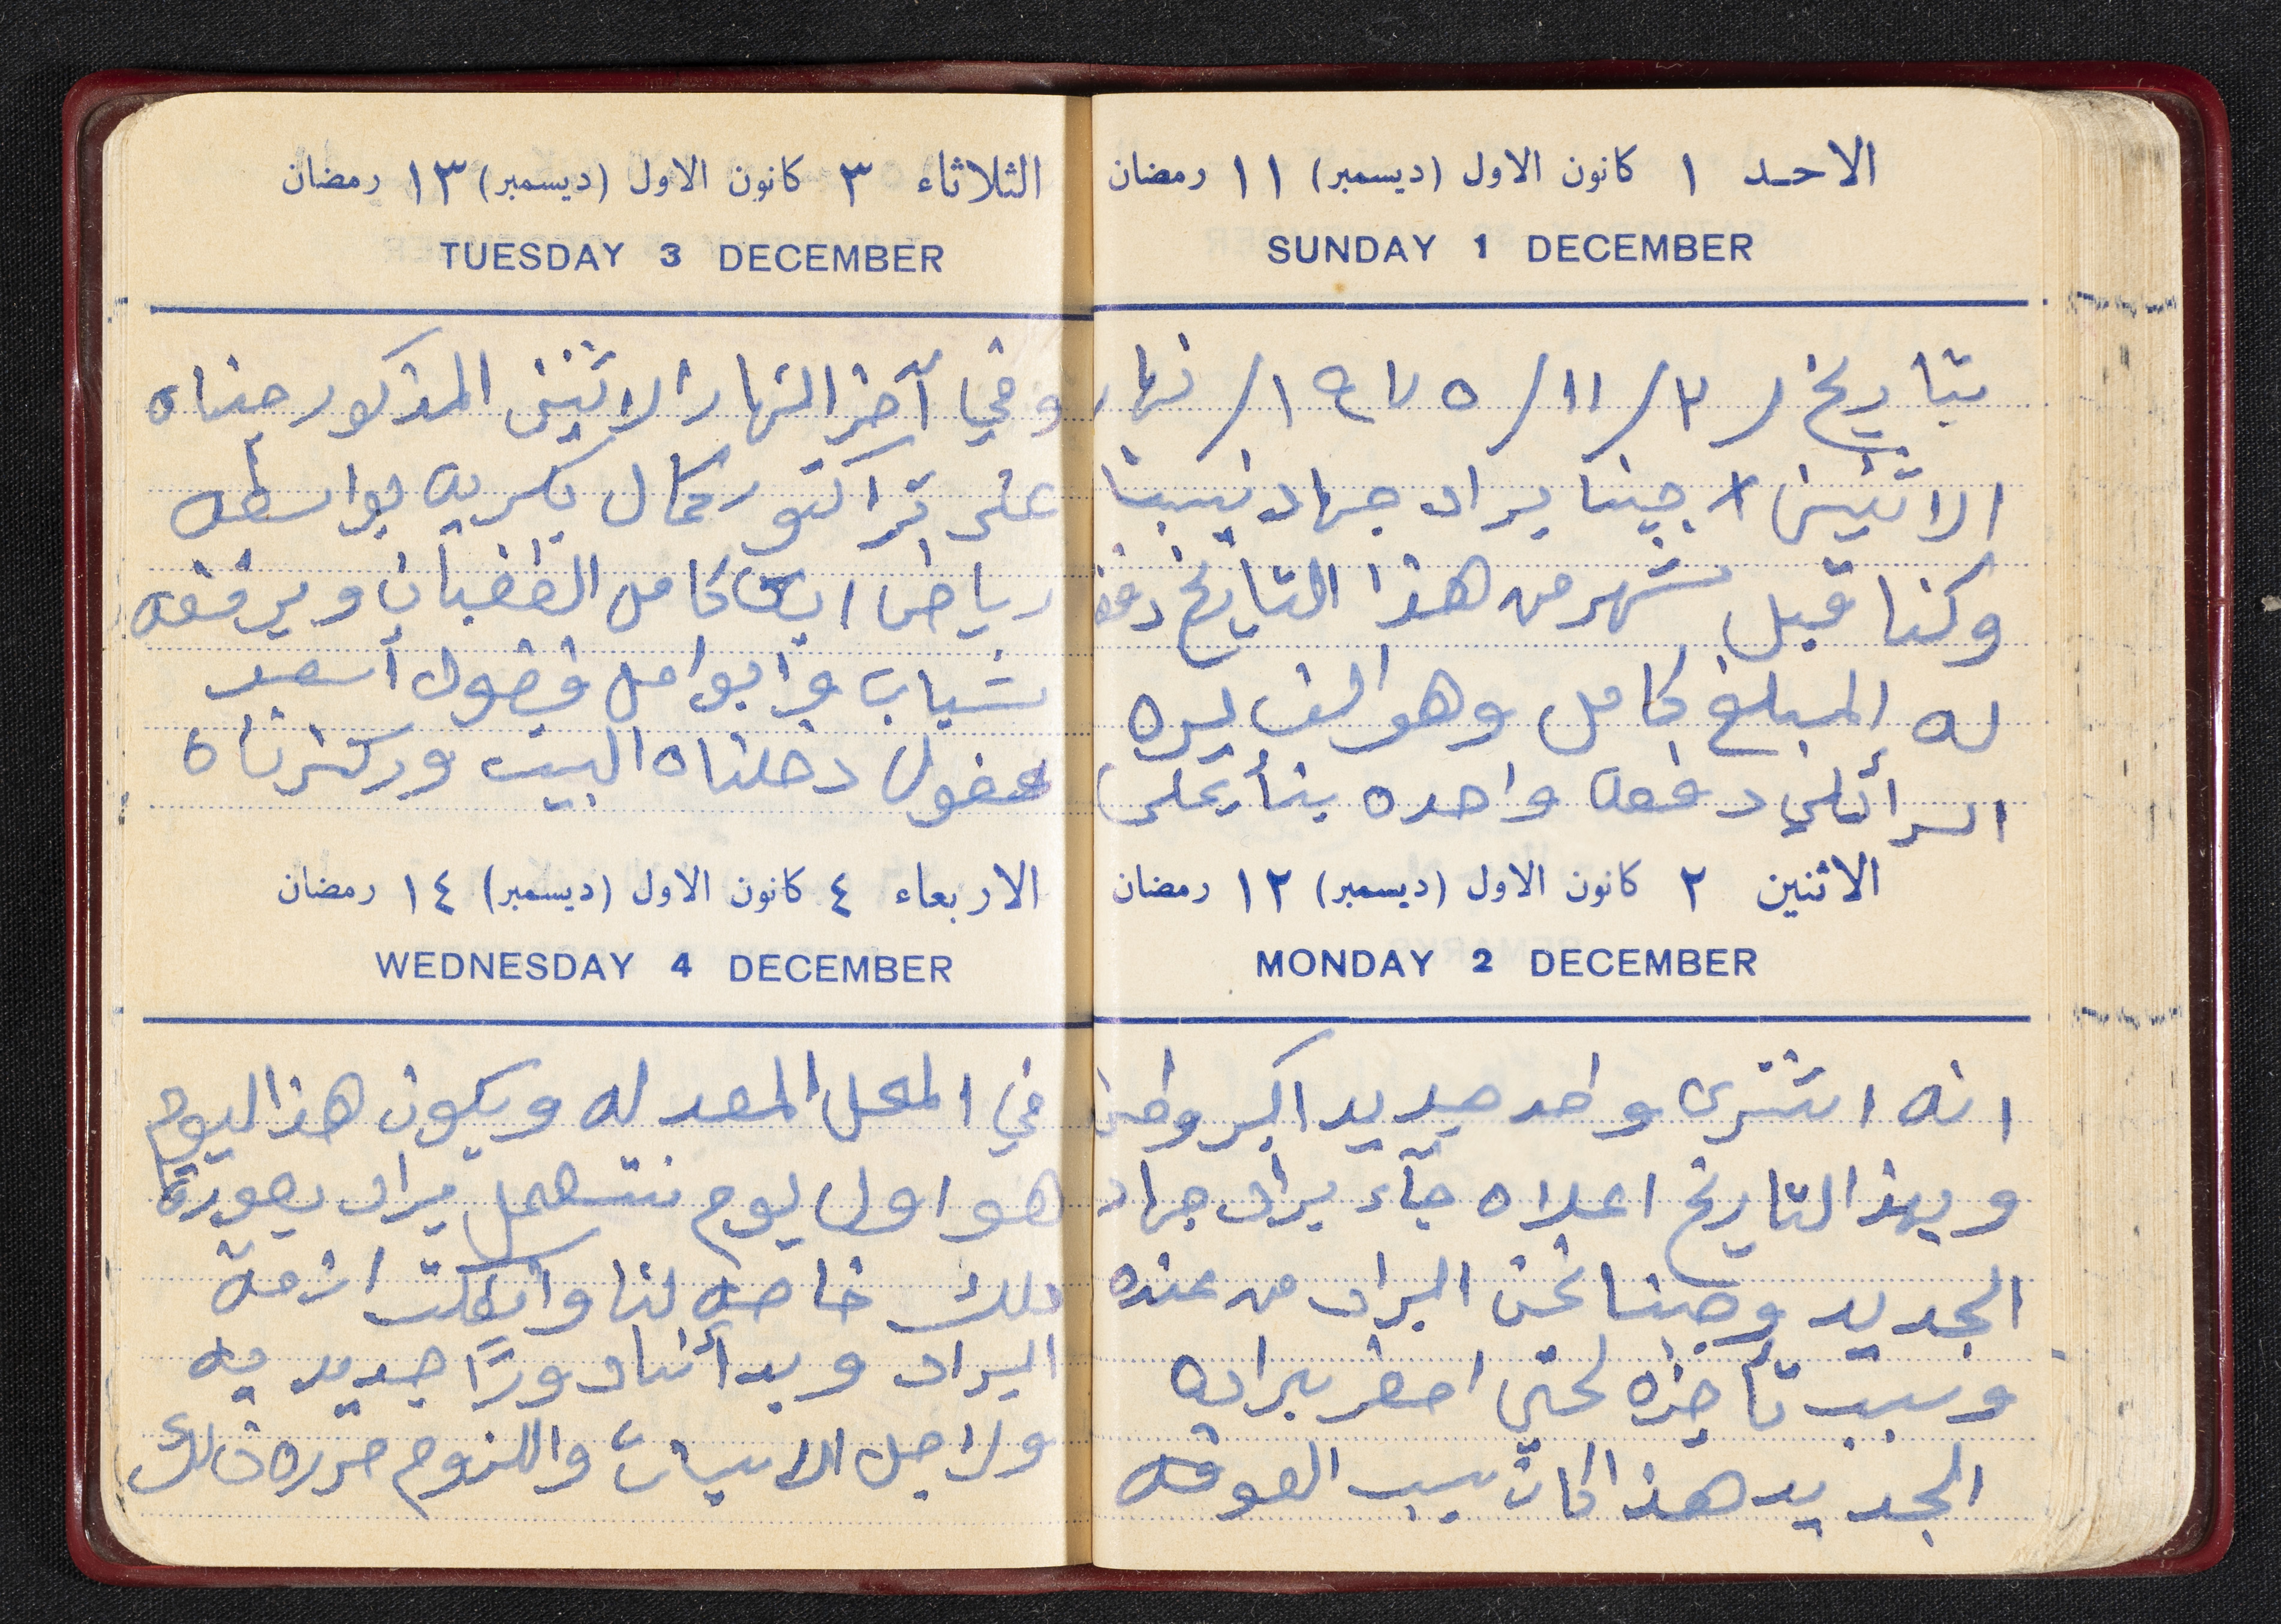 الاحد ١ كانون الاول (ديسمبر) ١١ رمضان
SUNDAY 1 DECEMBER
بتاريخ /٣/١١/١٩٧٥/ نهار
الاثنين جبنا براد جهاد نسبنا
وكنا قبل شهر من هذا التاريخ دفعنا
له المبلغ كامل وهو الف ليره
اسرائلي دفعه واحده بنأ على
الاثنين ٢ كانون الاول (ديسمبر) ١٢ رمضان
MONDAY 2 DECEMBER
انه اشترى واحد جديد اكبر
وبهذا التاريخ اعلاه جآء براد جهاد
الجديد وجبنا نحن البراد من عنده
وسبب تأخيره لحتى احضر براده
الجديد هذا كان سبب العوقه
الثلاثاء ٣ كانون الاول (ديسمبر) ١٣ رمضان
TUESDAY 3 DECEMBER
وفي آخر النهار الاثنين المذكور جبناه
على تراكتور كمال بكريه بواسطه
رياض ابن كامل الغضبان ويرفقه
شباب وابو امل فضول أسعد
فضول دخلناه البيت وركزناه
الاربعاء ٤ كانون الاول (ديسمبر) ١٤ رمضان
WEDNESDAY 4 DECEMBER
في المحل المعد له ويكون هذا اليوم
هو اول يوم نستعمل براد بصورة
ملك خاصه لنا وانفكت ازمة
البراد وبدأنا دورًا جديد به
ولاجل الاسباب واللزوم حرره ذلك